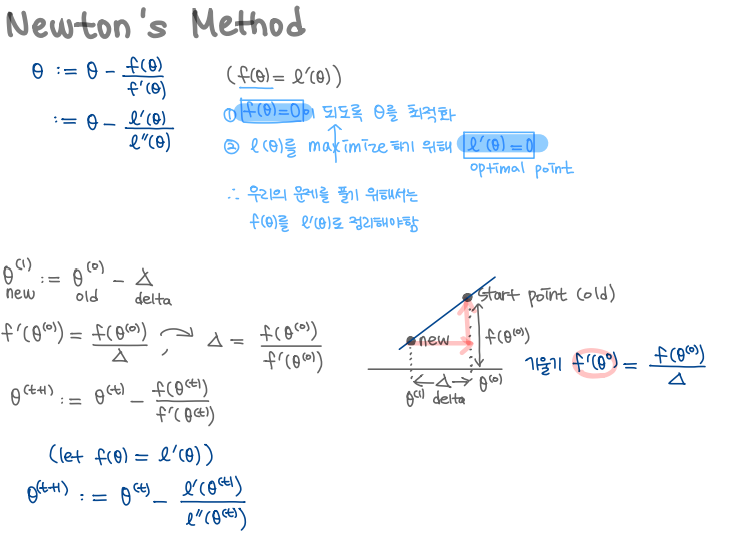 Newton's Method
θ := θ - f(θ)/f'(θ)
(f(θ) = ℓ'(θ))
:= θ - ℓ'(θ)/ℓ''(θ)
① f(θ)=0이 되도록 θ를 최적화
② ℓ(θ)를 maximize하기 위해 ℓ'(θ) = 0
optimal point
∴ 우리의 문제를 풀기 위해서는
f(θ)를 ℓ'(θ)로 정리해야함
θ^(1) := θ^(0) - Δ
new old delta
f'(θ^(0)) = f(θ^(0))/Δ , Δ = f(θ^(0))/f'(θ^(0))
θ^(t+1) := θ^(t) - f(θ^(t))/f'(θ^(t))
(let f(θ) = ℓ'(θ))
θ^(t+1) := θ^(t) - ℓ'(θ^(t))/ℓ''(θ^(t))
start point (old)
new
f(θ^(0))
Δ
θ^(0)
θ^(1) delta
기울기 f'(θ^0) = f(θ^(0))/Δ